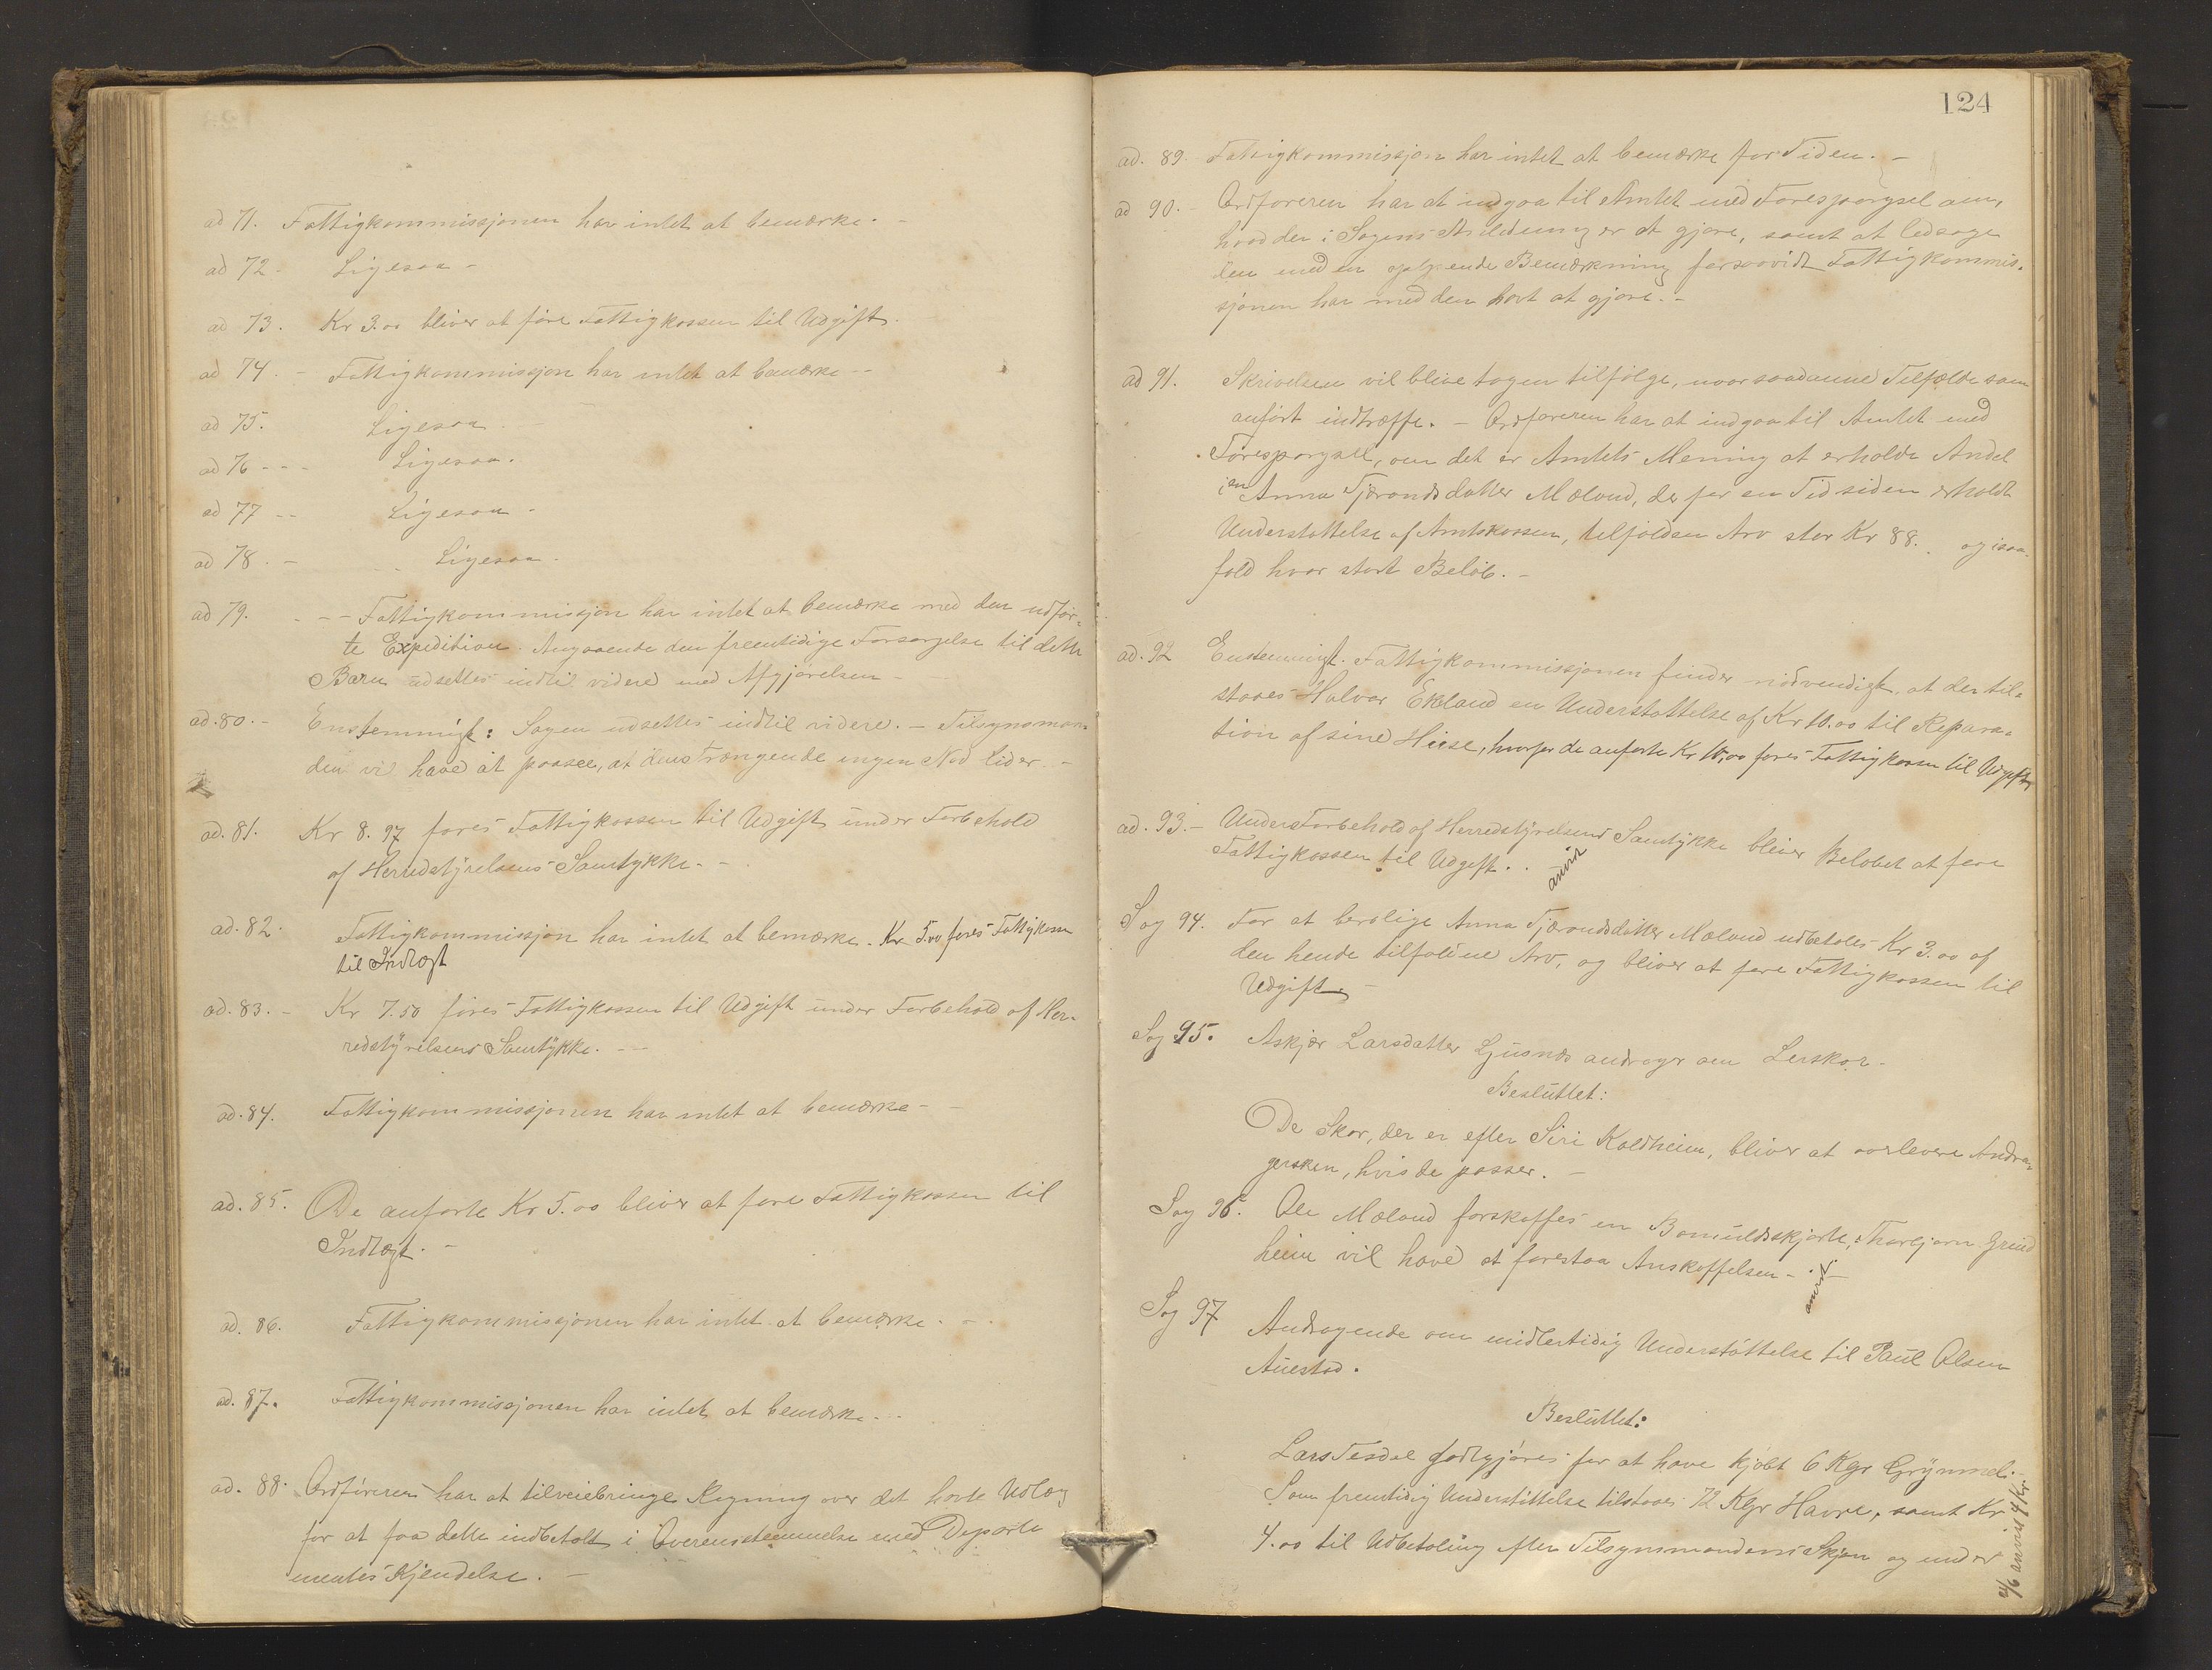 ad 71. Fattigkommissjonen har intet at bemærke. -
ad 72. Ligesaa -
ad 73. Kr 3.00 bliver at føre Fattigkassen til Udgift.
ad 74. - Fattigkommissjon har intet at bemærke --
ad 75. Ligesaa -
ad 76 --- Ligesaa.
ad 77 -- Ligesaa -
ad 78. - Ligesaa.
ad 79. --- Fattigkommissjon har intet at bemærke med den udfør-
te Expedition. Angaaende den fremtidige Forsørgelse til dette
Barn udsettes indtil videre med Afgjørelsen -
ad. 80. - Enstemmigt: Sagen udsettes indtil videre. - Tilsynsman-
den vil have at paasee, at den Trængende ingen Nød lider. -
ad. 81. Kr 8.97 føres Fattigkassen til Udgift under Forbehold
af Herredstyrelsens Samtykke. -
ad. 82. Fattigkommissjon har intet at bemærke. Kr 5.00 føres Fattigkassen
til Indtægt
ad. 83. - Kr 7.50 føres Fattigkassen til Udgift under Forbehold af Her-
redstyrelsens Samtykke. --
ad. 84. Fattigkommissjonen har intet at bemærke -
ad. 85. De anførte Kr 5.00 bliver at føre Fattigkassen til
Indtægt. -
ad. 86. Fattigkommissjonen har intet at bemærke. -
ad. 87. Fattigkommissjonen har intet at bemærke. -
ad. 88. Ordføreren har at tilveiebringe Regning over det havte Udlæg
for at faa dette indbetalt i Overensstemmelse med Departe
mentes Kjendelse. -
124
ad. 89. Fattigkommissjon har intet at bemærke for Tiden. -
ad 90. - Ordføreren har at indgaa til Amtet med Forespørgsel om,
hvad der i Sagens Anledning er at gjøre, samt at ledsage
den med en Bemærkning forsaavidt Fattigkommis-
sjonen har med den havt at gjøre. -
ad 91. Skrivelsen vil blive tagen tilfølge, naar saadanne Tilfælde som
anført indtræffe. - Ordføreren har at indgaa til Amtet med
Forespørgsel, om det er Amtets Mening at erholde Andel
i en Anna Tjærandsdatter Mæland, der for en Tid siden erholdt
Understøttelse af Amtskassen, tilfalden Arv stor Kr 88. og isaa-
fald hvor stort Beløb. -
ad. 92 Enstemmigt. Fattigkommissjonen finder nødvendigt, at der til-
staaes Halvor Ekeland en Understøttelse af Kr 10.00 til Repara-
tion af sine Huse, hvorfor de anførte Kr 10,00 føres Fattigkassen til Udgift
ad. 93. - Under Forbehold af Herredstyrelsens Samtykke bliver Beløbet at føre
Fattigkassen til Udgift. . anvist
Sag 94. For at berolige Anna Tjærandsdatter Mæland udbetales Kr 3.00 af
den hende tilfaldne Arv, og bliver at føre Fattigkassen til
Udgift. -
Sag 95. Askjær Larsdatter Ljusnes andrager om Lerskor -
Besluttet:
De Skor, der er efter Siri Kaldheim, bliver at overlevere Andra-
gersken, hvis de passer. -
Sag 96. Ole Mæland forskaffes en Bomuldsskjorte, Thorbjørn Grind
heim vil have at forestaa Anskaffelsen - anvist
Sag 97 Andragende om midlertidig Understøttelse til Paul Olsen
Auestad.
Besluttet:
Lars Tesdal godtgjøres for at have kjøbt 6 Kgr Grynmel.
Som fremtidig Understøttelse tilstaaes 72 Kgr Havre, samt Kr
4.00 til Udbetaling efter Tilsynsmandens Skjøn og under
anvist 4 Kr.